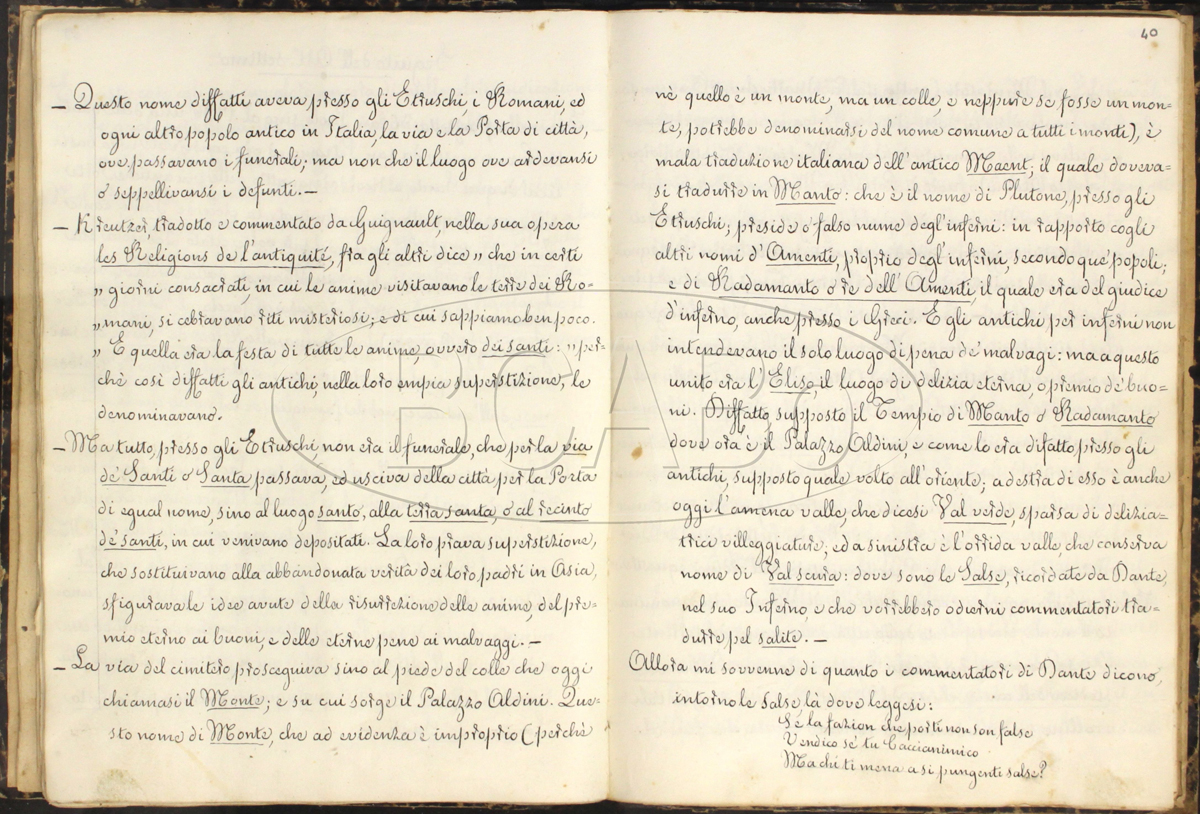 — Questo nome diffatti aveva presso gli Etruschi, i Romani, ed
ogni altro popolo antico in Italia, la via e la Porta di città,
ove passavano i funerali; ma non che il luogo ove ardevansi
o seppellivansi i defunti. —
— Kreutzer, tradotto e commentato da Guignault, nella sua opera
les Religions de l'antiquité, fra gli altri dice „ che in certi
„ giorni consacrati, in cui le anime visitavano le terre dei Ro=
„ mani, si cebravano riti misteriosi; e di cui sappiamo ben poco.
„ E quella era la festa di tutte le anime, ovvero dei santi: „ per=
chè così diffatti gli antichi, nella loro empia superstizione, le
denominavano.
— Ma tutto, presso gli Etruschi, non era il funerale, che per la via
de' Santi o Santa, passava, ed usciva della città per la Porta
di egual nome, sino al luogo santo, alla terra santa, o al recinto
de' santi, in cui venivano depositati. La loro prava superstizione,
che sostituivano alla abbandonata verità dei loro padri in Asia,
sfigurava le idee avute della risurrezione delle anime, del pre=
mio eterno ai buoni, e delle eterne pene ai malvaggi. —
— La via del cimitero prosceguiva sino al piede del colle che oggi
chiamasi il Monte; e su cui sorge il Palazzo Aldini. Que=
sto nome di Monte, che ad evidenza è improprio (perchè
40
nè quello è un monte, ma un colle, e neppure se fosse un mon=
te, potrebbe denominarsi del nome comune a tutti i monti), è
mala traduzione italiana dell'antico Maent, il quale doveva=
si tradurre in Manto: che è il nome di Plutone, presso gli
Etruschi; preside o falso nume degl'inferni: in rapporto cogli
altri nomi d'Amenti, proprio degl'inferni, secondo que' popoli;
e di Radamanto o re dell'Amenti, il quale era del giudice
d'inferno, anche presso i Greci. E gli antichi per inferni non
intendevano il solo luogo di pena de' malvagi: ma a questo
unito era l'Eliso, il luogo di delizia eterna, o premio de' buo=
ni. Diffatto, supposto il Tempio di Manto o Radamanto
dove ora è il Palazzo Aldini, e come lo era difatto, presso gli
antichi, supposto quale volto all'oriente; a destra di esso è anche
oggi l'amena valle, che dicesi Val verde, sparsa di delizia=
trici villeggiature; ed a sinistra è l'orrida valle, che conserva
nome di Val scura: dove sono le Salse, ricordate da Dante,
nel suo Inferno, e che vorrebbero odierni commentatori tra=
durre pel salite. —
Allora mi sovvenne di quanto i commentatori di Dante dicono,
intorno le Salse, là dove leggesi:
Se la fazion che porti non son false
Vendico se' tu Caccianimico
Ma chi ti mena a si pungenti salse?